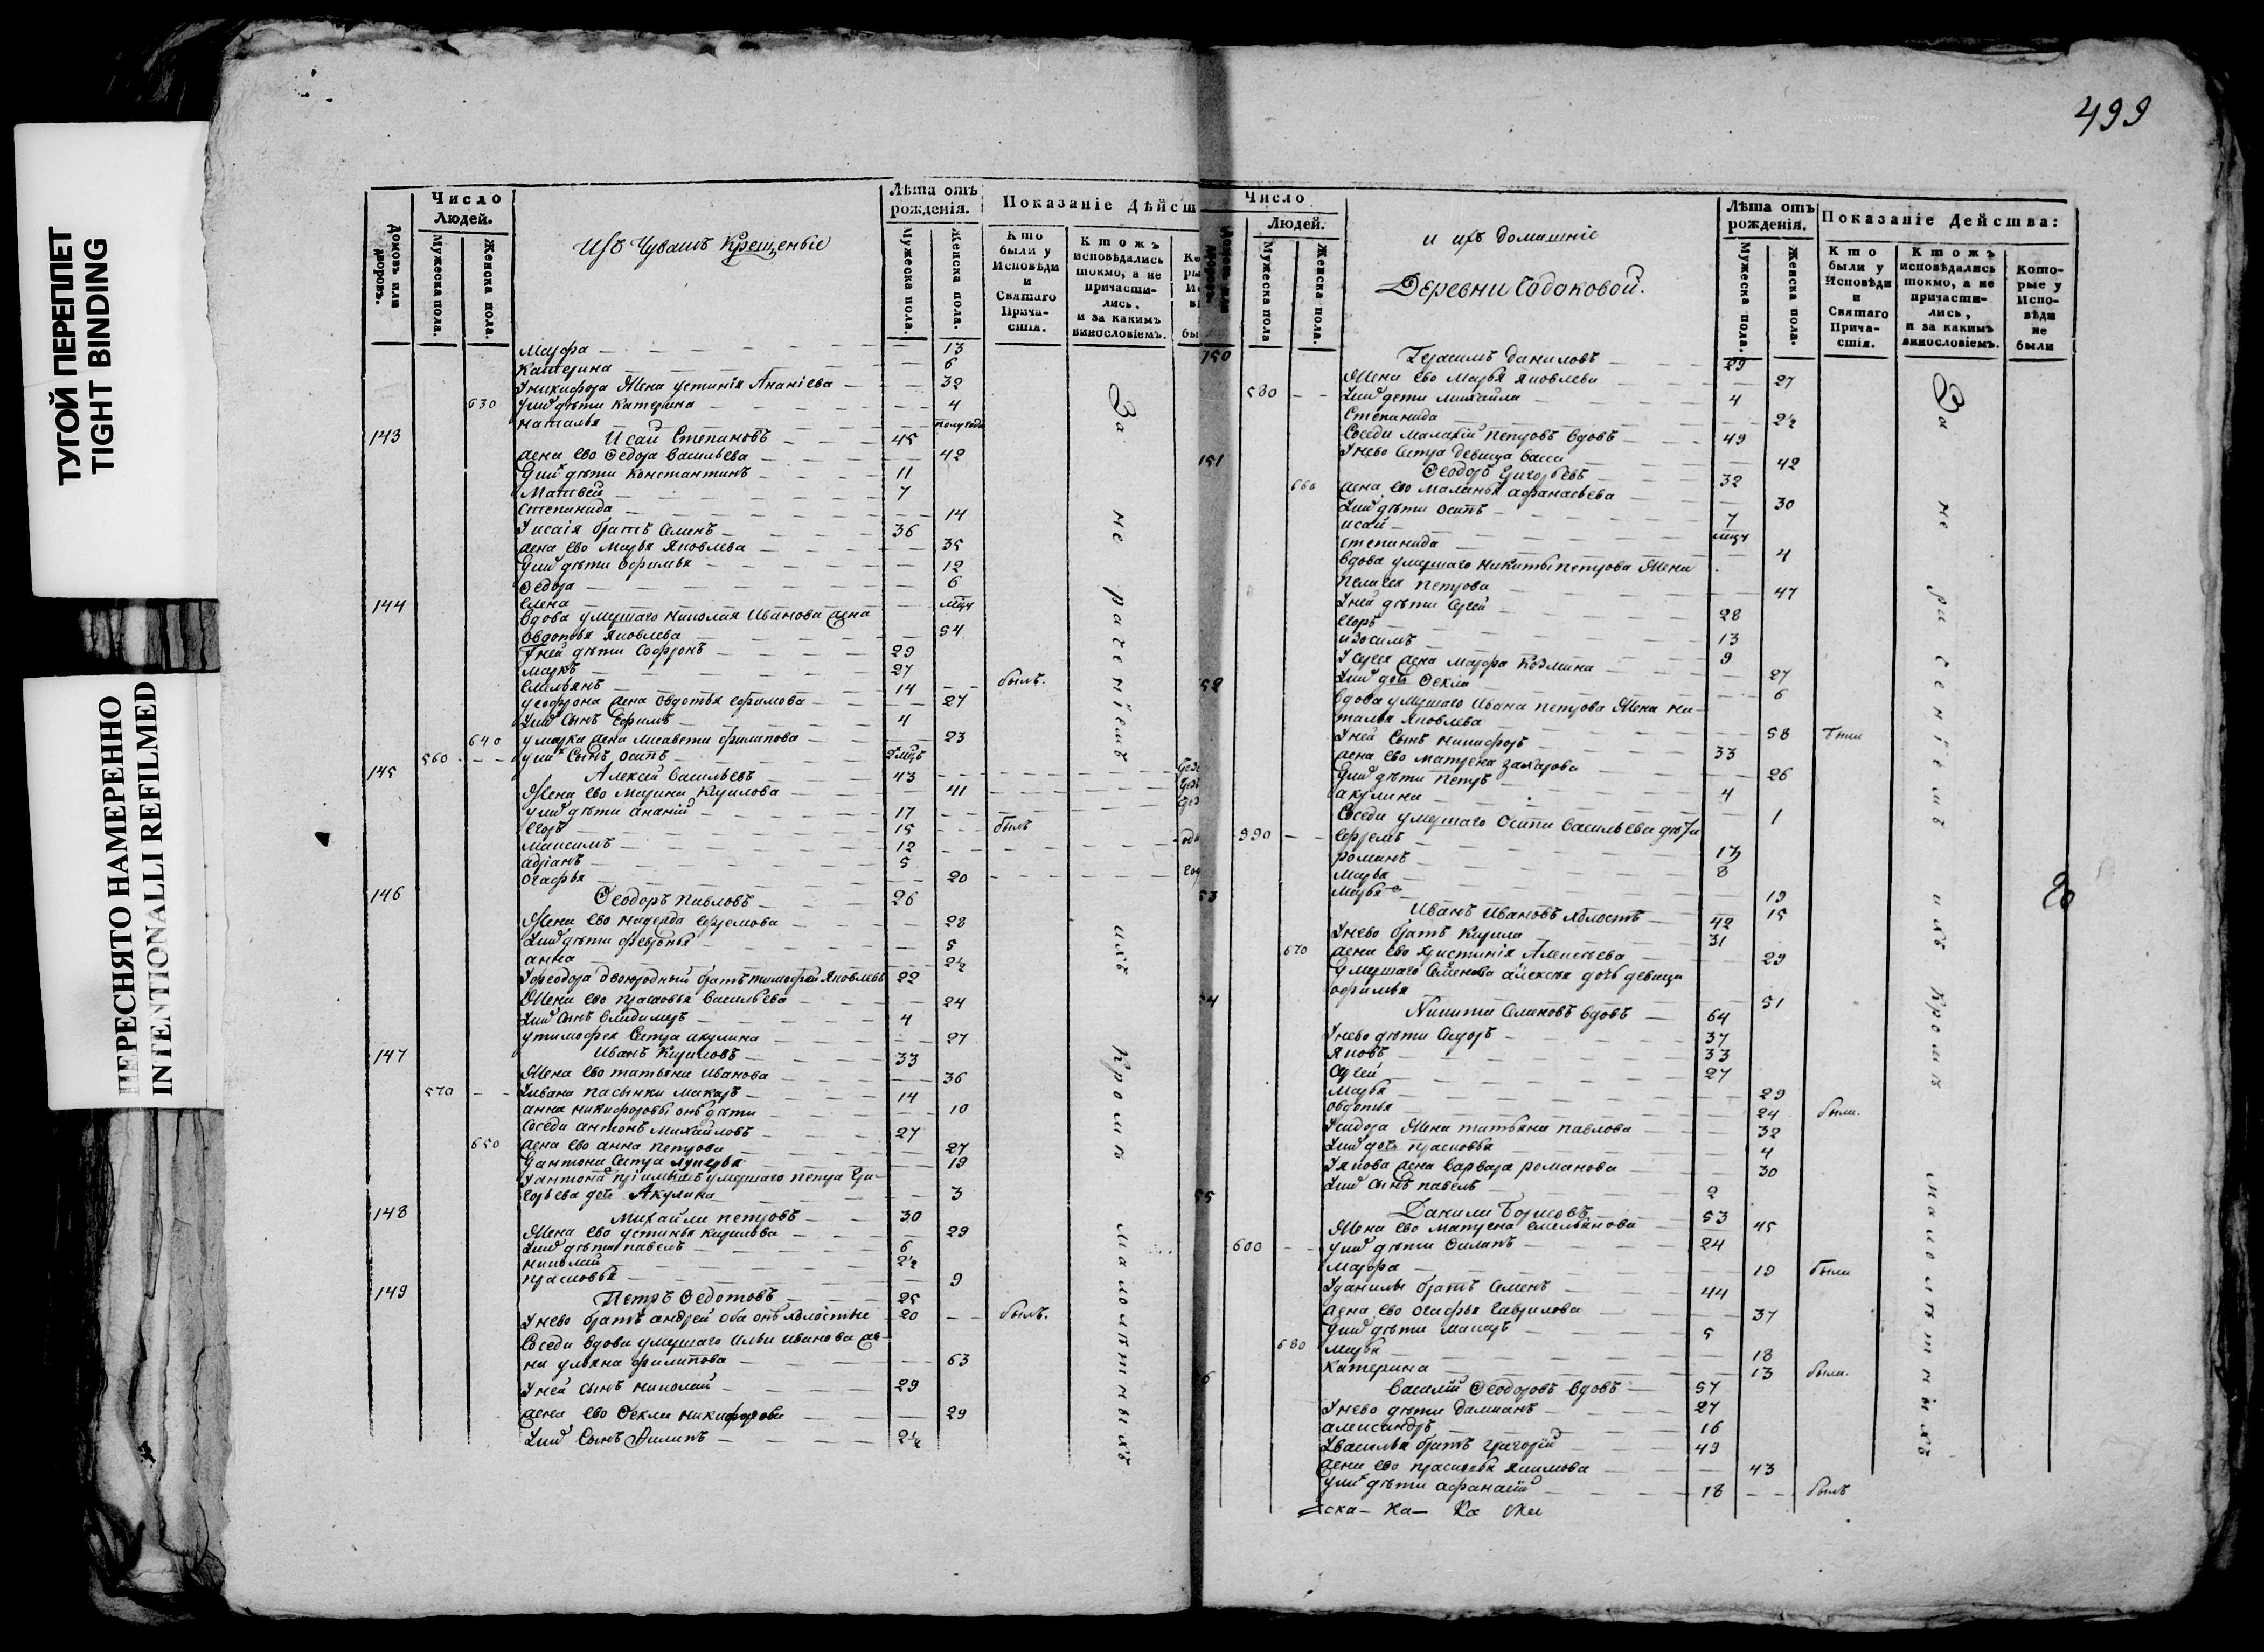 499
ТУГОЙ ПЕРЕПЛЕТ
TIGHT BINDING
ПЕРЕСНЯТО НАМЕРЕННО
INTENTIONALLI REFILMED
Домовъ или дворовъ.
Число Людей.
Мужеска пола.
Женска пола.
Изъ Чувашъ Крещеные
Лѣта отъ рожденія.
Мужеска пола.
Женска пола.
Показаніе Дѣйст
Кто были у Исповѣди и Святаго Причастія.
Ктожъ исповѣдались токмо, а не причастились, и за какимъ винословіемъ.
Марфа — 13
Катерина — 6
Уникифора Жена Устинія Ананіева — 32
630 Уних дѣти Катерина — 4
Наталья — полугода
143 Исай Степановъ — 45
жена ево Федора Васильева — 42
Уних дѣти Константинъ — 11
Матвей — 7
Степанида — 14
Уисаія братъ Семенъ — 36
жена ево Марья Яковлева — 35
Уних дѣти Офимья — 12
Федора — 6
Елена — мцу
144 Вдова умершаго Николая Иванова жена
Овдотья Яковлева — 54
Уней дѣти Софронъ — 29
Маркъ — 27
Емельянъ — 14 — былъ.
Усофрона жена Овдотья Ефимова — 27
Уних сынъ Ефимъ — 4
640 Умарка жена Лисавета Филипова — 23
560 Уних Сынъ Осипъ — 2 мцъ
145 Алексей Васильевъ — 43
Жена ево Марина Кирилова — 41
Уних дѣти Ананій — 17
Егоръ — 15 — былъ
Максимъ — 12
Адріанъ — 5
Огафья — 20
146 Феодоръ Павловъ — 26
Жена ево Надежда Ефремова — 28
Уних дѣти Февронья — 5
Анна — 2½
Уфеодора двоюродный братъ Тимофей Яковлевъ 22
Жена ево Прасковья Васильева — 24
Уних Сынъ Владимеръ — 4
Утимофея Сестра Акулина — 27
147 Иванъ Кириловъ — 33
Жена ево Татьяна Иванова — 36
570 Уивана пасынки Макаръ — 14
Анна Никифоровы онѣ дѣти — 10
Соседи Антонъ Михайловъ — 27
650 жена ево Анна Петрова — 27
Уантона Сестра Лукерья — 19
Уантона пріимышъ умершаго Петра Гри-
горьева дочь Акулина — 3
148 Михайла Петровъ — 30
Жена ево Устинья Кирилова — 29
Уних дѣти Павелъ — 6
Николай — 2½
Прасковья — 9
149 Петръ Федотовъ — 25
Унево братъ Андрей оба онѣ холостые — 20 — былъ.
Соседи вдова умершаго Ильи Иванова же-
на Ульяна Филипова — 63
Уней сынъ Николай — 29
жена ево Фекла Никифорова — 29
Уних Сынъ Филипъ — 2½
За не раченіемъ ихъ Кромѣ малолѣтныхъ
Число
Людей.
Мужеска пола
Женска пола.
и ихъ домашніе
Деревни Содаковой.
Лѣта отъ рожденія.
Мужеска пола.
Женска пола.
Показаніе Действа:
Кто были у Исповѣди и Святаго Причастія.
Ктожъ исповѣдались токмо, а не причастились, и за какимъ винословіемъ.
Которые у Исповѣди не были
150 Герасимъ Даниловъ — 29
Жена ево Марья Яковлева — 27
580 Уних дети Михайла — 4
Степанида — 2½
Соседи Малахій Петровъ вдовъ — 49
Унево Сестра девица Васса — 42
151 Феодоръ Григорьевъ — 32
660 жена ево Маланья Афанасьева — 30
Уних дѣти Осипъ — 7
Исай — мцу
Степанида — 4
Вдова умершаго Никиты Петрова Жена
Пелагея Петрова — 47
Уней дѣти Сергей — 28
Егоръ — 13
Изосимъ — 9
Усергея жена Марфа Козмина — 27
Уних дочь Фекла — 6
52 Вдова умершаго Ивана Петрова Жена На-
талья Яковлева — 58 — были
Уней Сынъ Никифоръ — 33
жена ево Матрена Захарова — 26
Уних дѣти Петръ — 4
Акулина — 1
Соседи умершаго Осипа Васильева дѣти
590 Ефремъ — 13
Романъ — 8
Марья — 19
Марья — 15
53 Иванъ Ивановъ холостъ — 42
Унево братъ Кирила — 31
670 жена ево Христинія Алексеева — 29
Умершаго Семенова Алексея дочь девица
Офимья — 51
54 Никита Семеновъ вдовъ — 64
Унево дѣти Сидоръ — 37
Яковъ — 33
Сергей — 27
Марья — 29
Овдотья — 24 — были.
Усидора Жена Татьяна Павлова — 32
Уних дочь Прасковья — 4
Уякова жена Варвара Романова — 30
Уних сынъ Павелъ — 2
55 Данила Борисовъ — 53
Жена ево Матрена Емельянова — 45
600 Уних дѣти Филипъ — 24
Марфа — 19 — были
Уданилы братъ Семенъ — 44
жена ево Огафья Гаврилова — 37
Уних дѣти Макаръ — 5
680 Марья — 18
Катерина — 13 — были.
6 Василій Феодоровъ вдовъ — 57
Унево дѣти Дамианъ — 27
Александръ — 16
Увасилья братъ Григорій — 49
жена ево Прасковья Якимова — 43
Уних дѣти Афанасій — 18 — былъ
За не раченіемъ ихъ Кромѣ малолѣтныхъ